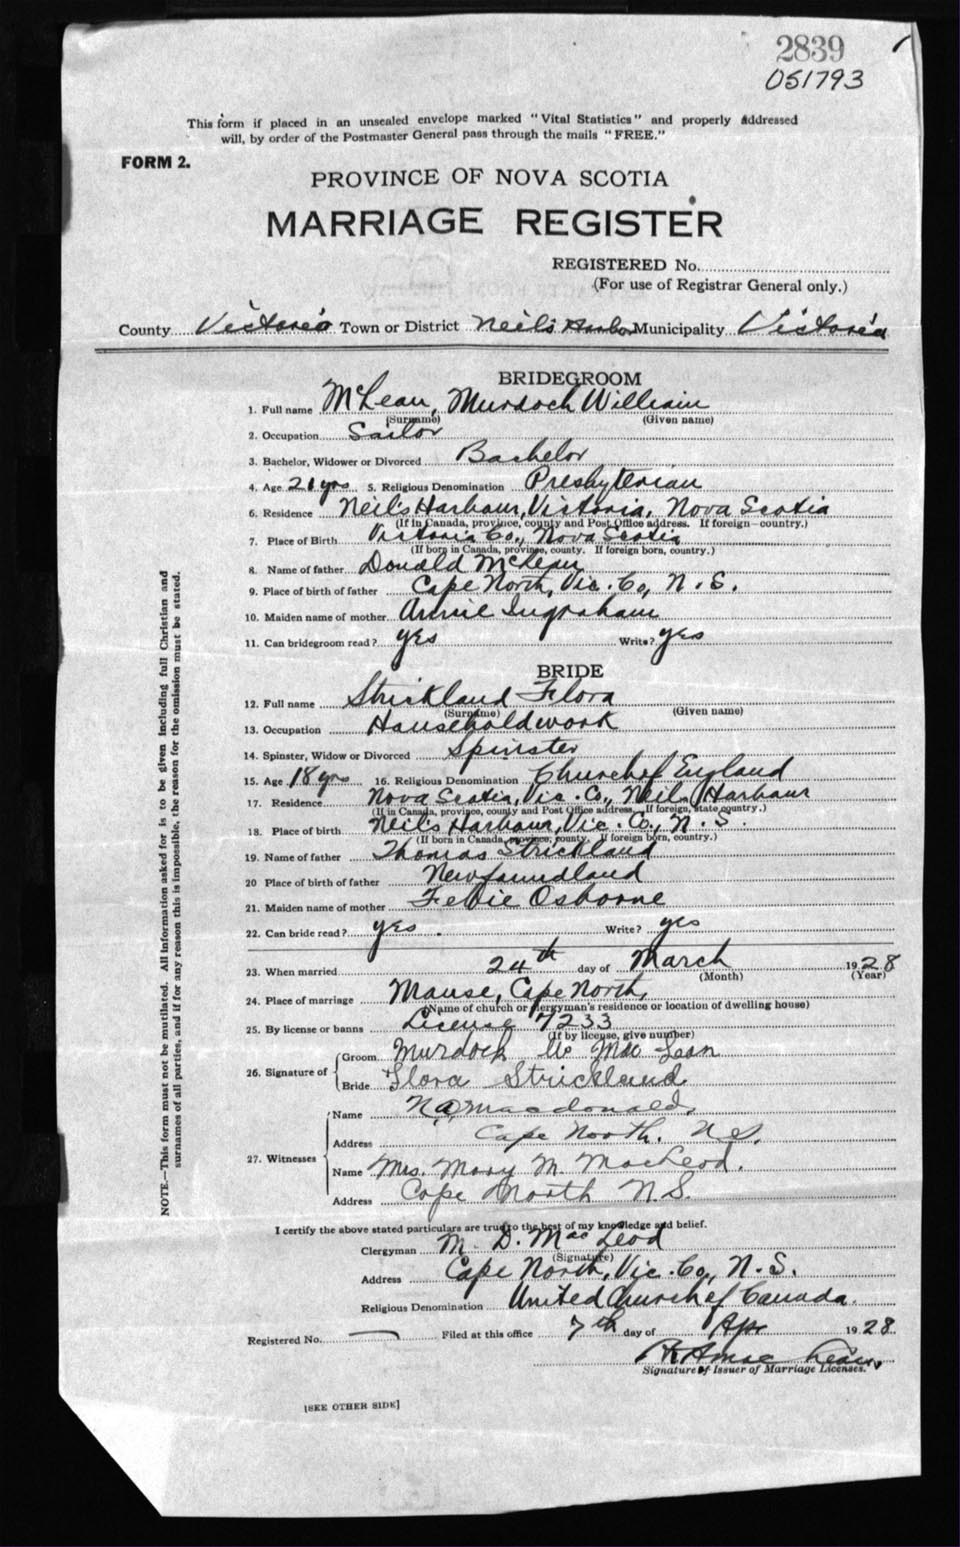 2839
051793
This form if placed in an unsealed envelope marked "Vital Statistics" and properly addressed
will, by order of the Postmaster General pass through the mails "FREE."
FORM 2.
PROVINCE OF NOVA SCOTIA
MARRIAGE REGISTER
REGISTERED No.
(For use of Registrar General only.)
County Victoria Town or District Neils Harbor Municipality Victoria
BRIDEGROOM
1. Full name McLean, Murdoch William
(Surname) (Given name)
2. Occupation Sailor
3. Bachelor, Widower or Divorced Bachelor
4. Age 21 yrs 5. Religious Denomination Presbyterian
6. Residence Neils Harbour, Victoria, Nova Scotia
(If in Canada, province, county and Post Office address. If foreign—country.)
7. Place of Birth Victoria Co., Nova Scotia
(If born in Canada, province, county. If foreign born, country.)
8. Name of father Donald McLean
9. Place of birth of father Cape North, Vic. Co., N.S.
10. Maiden name of mother Annie Ingraham
11. Can bridegroom read? yes Write? yes
BRIDE
12. Full name Strickland Flora
(Surname) (Given name)
13. Occupation Householdwork
14. Spinster, Widow or Divorced Spinster
15. Age 18 yrs 16. Religious Denomination Church of England
17. Residence Nova Scotia, Vic. Co., Neils Harbour
(If in Canada, province, county and Post Office address. If foreign, state country.)
18. Place of birth Neils Harbour, Vic. Co., N.S.
(If born in Canada, province, county. If foreign born, country.)
19. Name of father Thomas Strickland
20 Place of birth of father Newfoundland
21. Maiden name of mother Febie Osborne
22. Can bride read? yes. Write? yes
23. When married 24th day of March 1928
(Month) (Year)
24. Place of marriage Manse, Cape North,
(Name of church or clergyman's residence or location of dwelling house)
25. By license or banns License 7233
(If by license, give number)
26. Signature of
Groom Murdock Mac Lean
Bride Flora Strickland
27. Witnesses
Name Macdonald,
Address Cape North. N.S.
Name Mrs. Mary M. MacLeod.
Address Cape North N.S.
I certify the above stated particulars are true to the best of my knowledge and belief.
Clergyman M. D. MacLeod
(Signature)
Address Cape North, Vic. Co., N.S.
Religious Denomination United Church of Canada.
Registered No. Filed at this office 7th day of Apr 1928
Signature of Issuer of Marriage Licenses.
[SEE OTHER SIDE]
NOTE.—This form must not be mutilated. All information asked for is to be given including full Christian and
surnames of all parties, and if for any reason this is impossible, the reason for the omission must be stated.